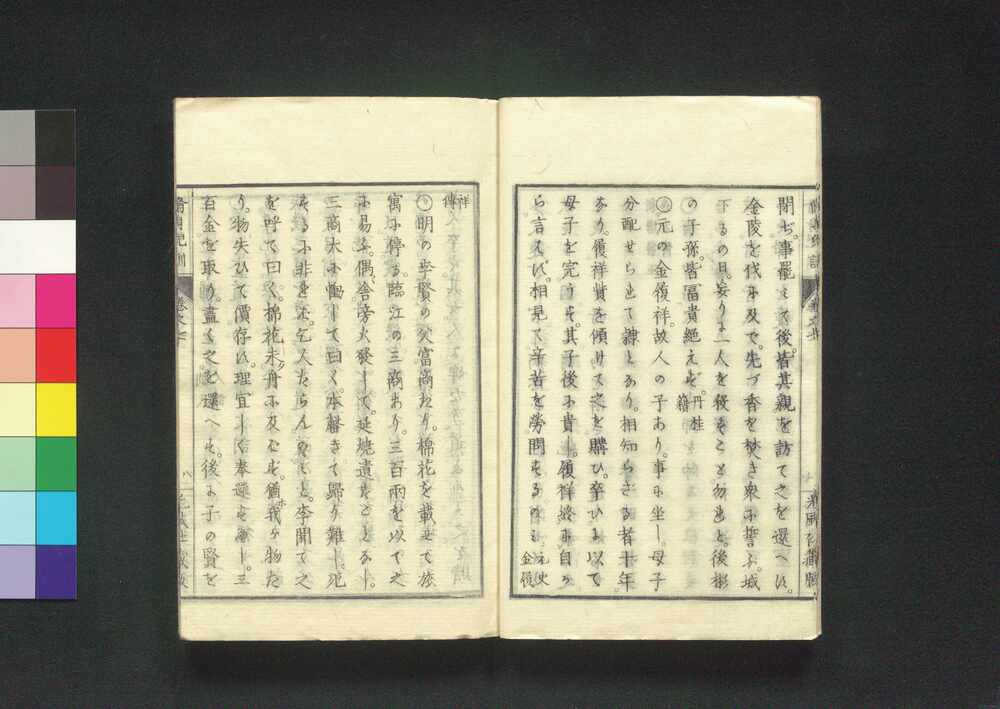 閉ぢ。事罷えて後。皆其親を訪て之を還へす。
金陵を伐に及で。先づ香を焚き衆に誓ふ。城
下るの日。妄りに一人を殺すこと勿れと。後彬
の子孫。皆富貴絶えず。丹桂籍
○元の金履祥故人の子あり。事に坐し。母子
分配せられて隷となり。相知らざる者十年。
なり。履祥貲を傾けて之を購ひ。卒ひに以て
母子を完うす。其子後に貴し。履祥終に自か
ら言えず。相見て辛苦を勞問するのミ。元史金履
祥傳
○明の李賢の父富商たり。棉花を載せて旅
寓に停る。臨江の三商あり。三百兩を以て之
に易ふ。偶舎傍火發して。延焼遺すことなし。
三商大に慟して曰く。本罄きて歸り難し。死
を呼て曰く。棉花未ダ舟に及ばず。猶ホ我ガ物た
り。物失ひて價存す。理宜しく奉還すべし。三
百金を取り。盡く之を還へす。後に子の賢を